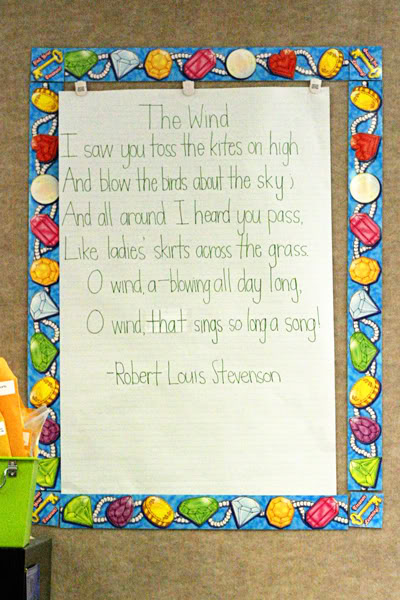 The Wind
I saw you toss the kites on high
And blow the birds about the sky;
And all around I heard you pass,
Like ladies' skirts across the grass.
O wind, a-blowing all day long,
O wind, that sings so long a song!
-Robert Louis Stevenson